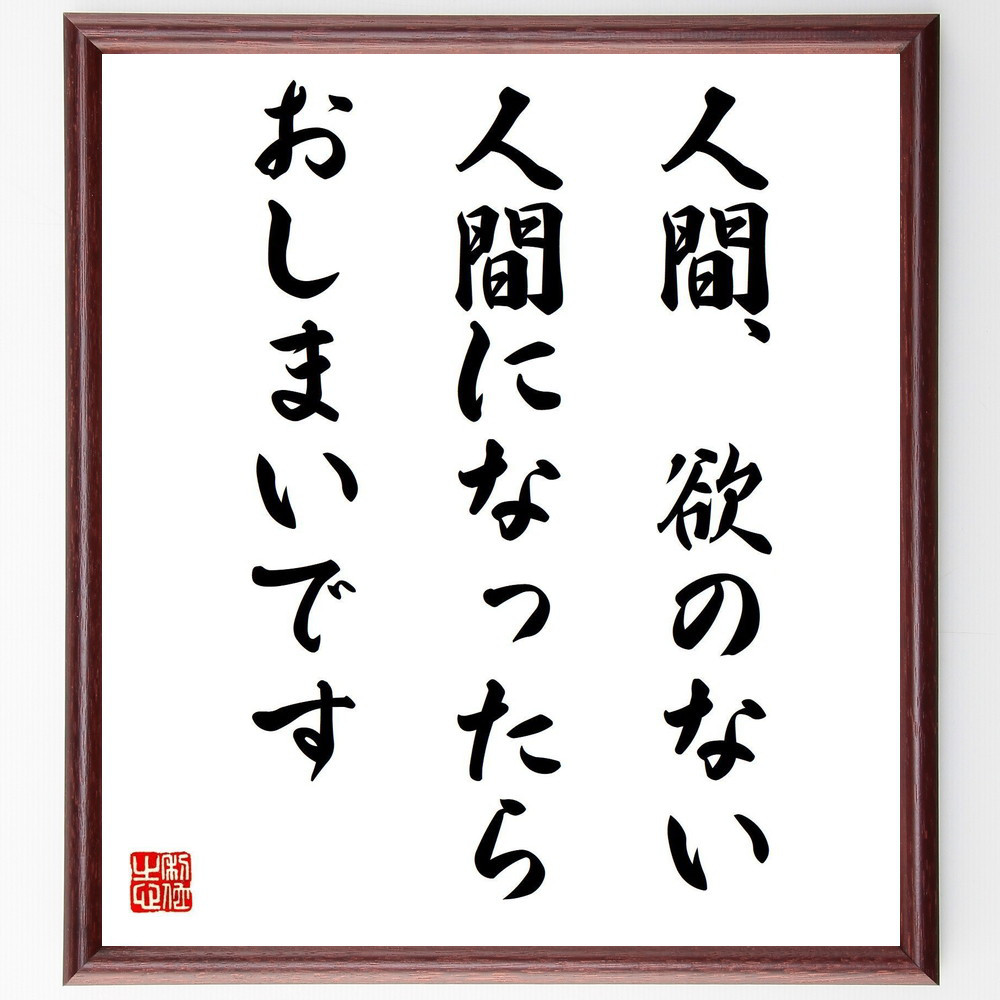 人間、 欲のない
人間になったら
おしまいです